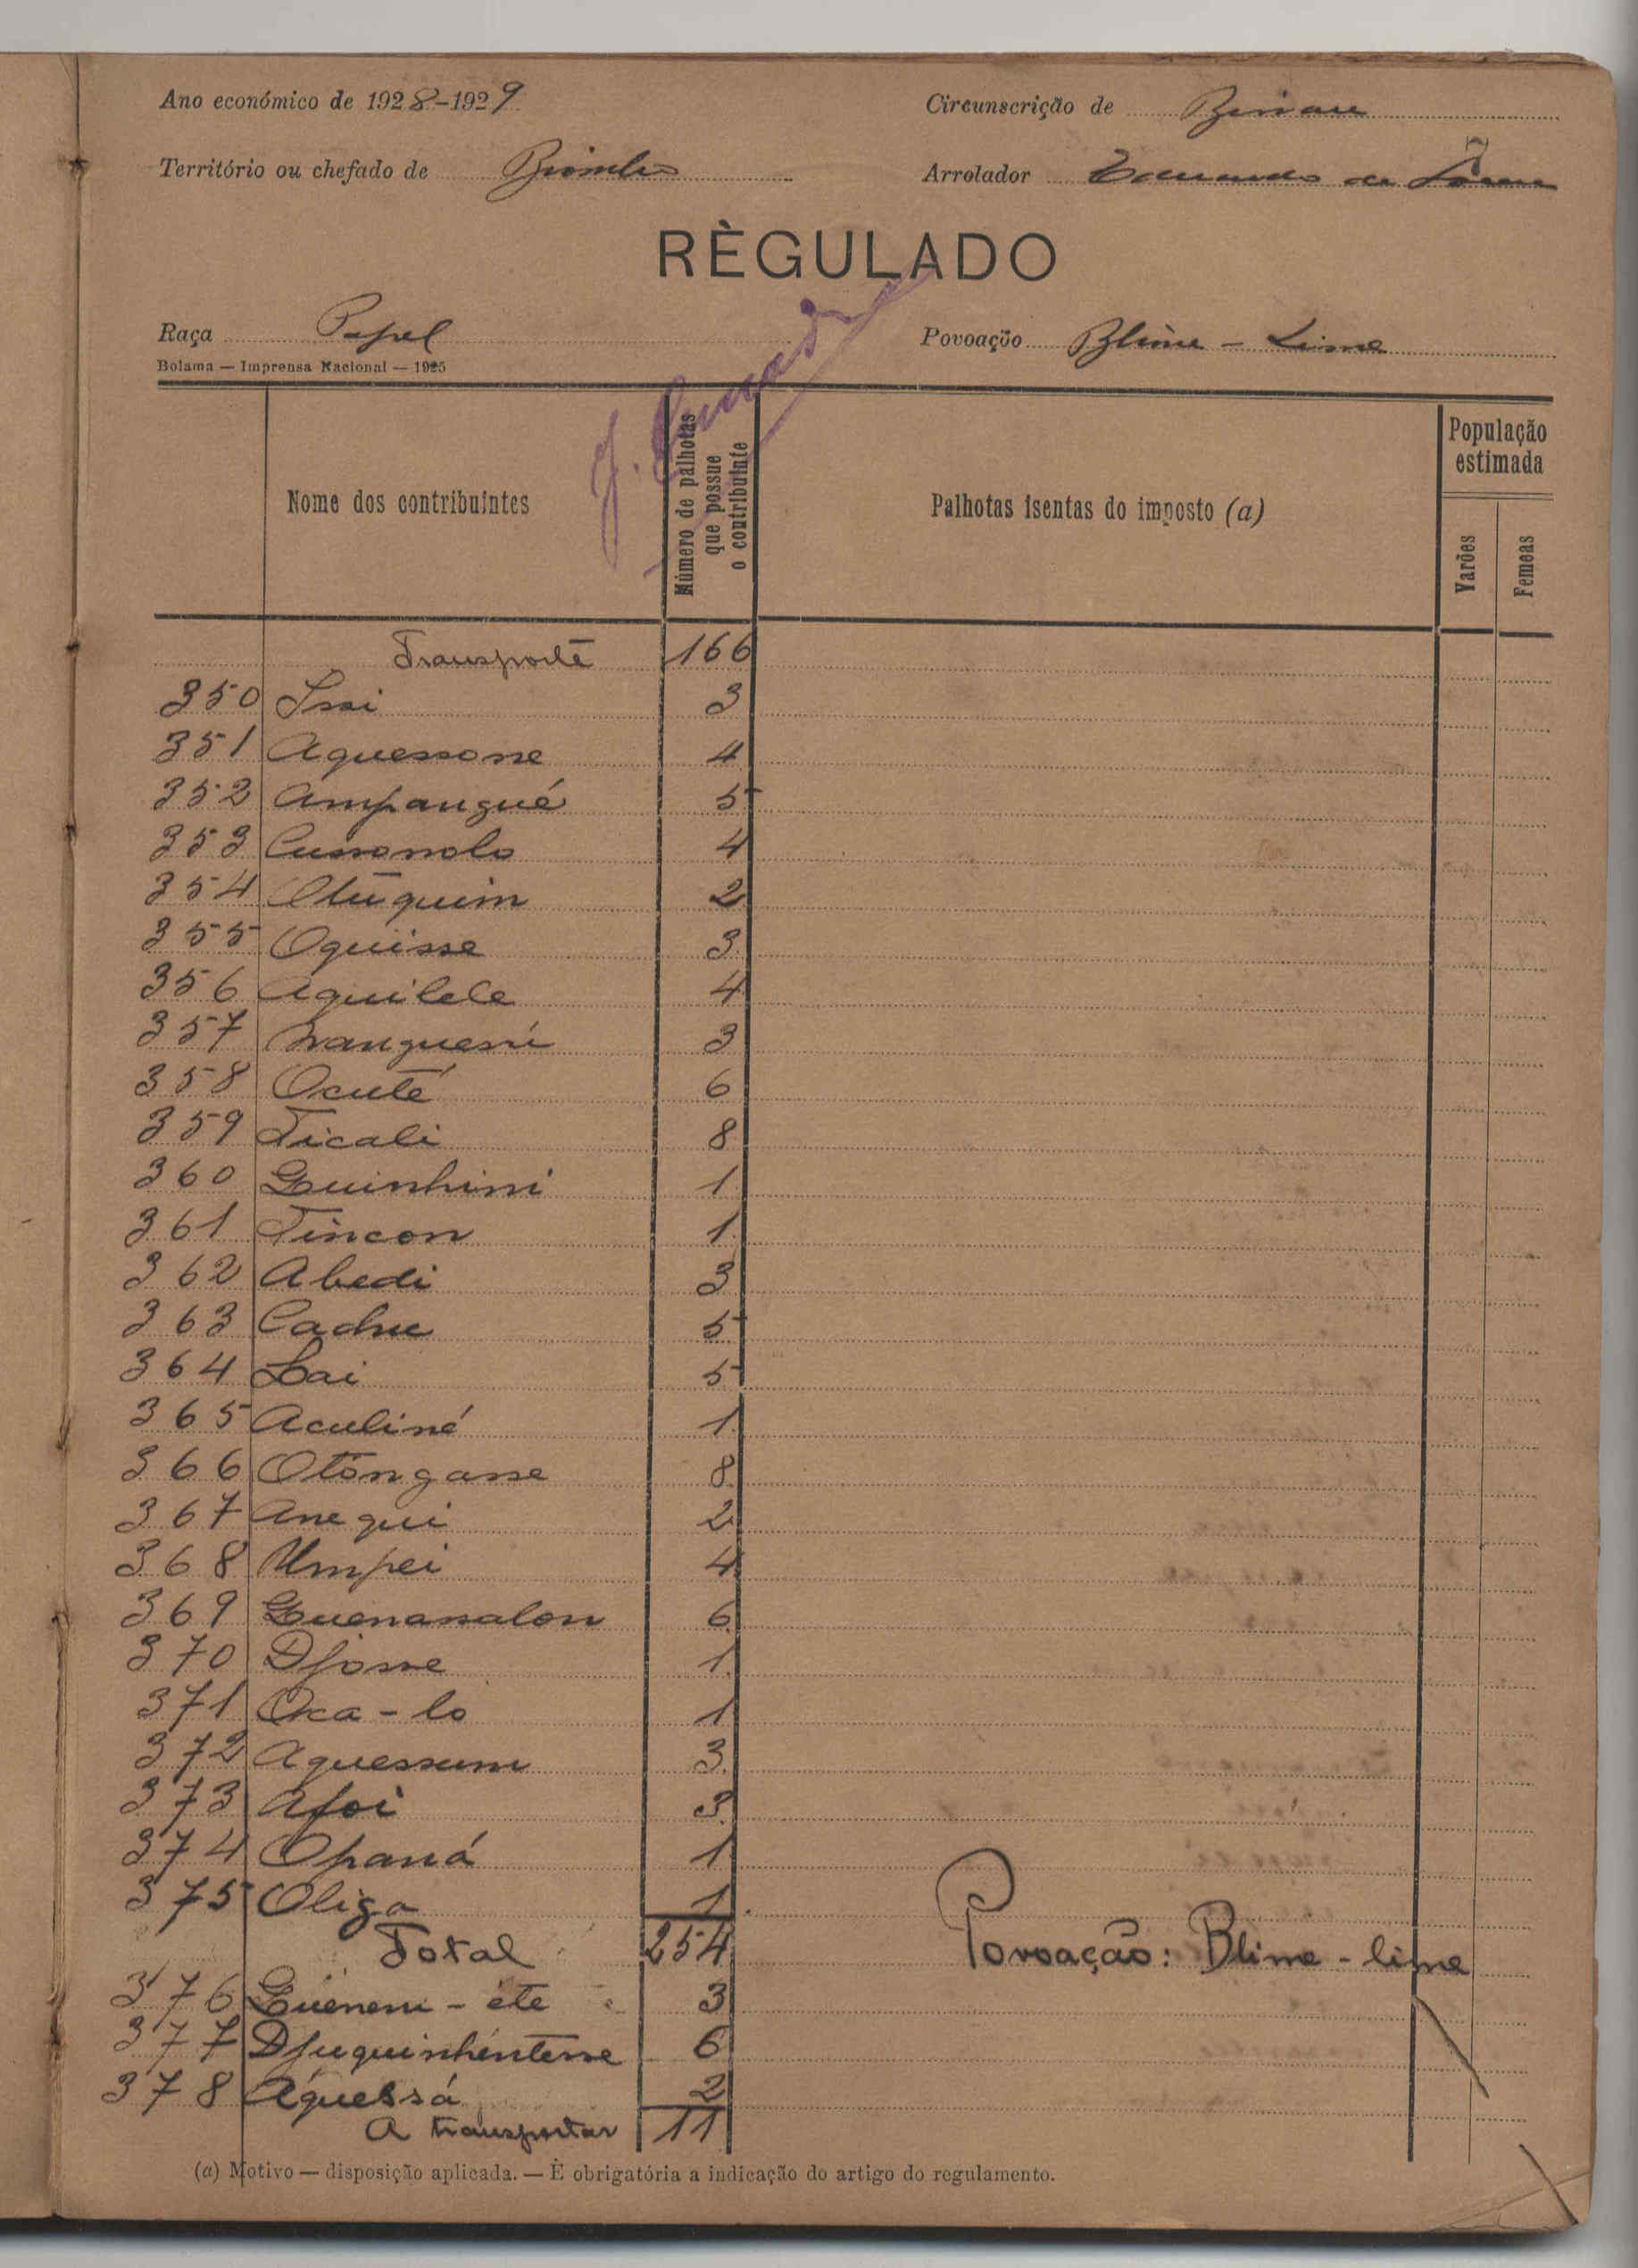 Ano económico de 1928-1929
Circunscrição de Bissau
Território ou chefado de Biombo
Arrolador de
RÈGULADO
Raça Papel
Povoação Blime - Lime
Bolama — Imprensa Nacional — 1925
Nome dos contribuintes
Número de palhotas que possue o contribuinte
Palhotas isentas do imposto (a)
População estimada
Varões
Femeas
Transporte 166
350 Issi 3
351 Aquessone 4
352 Ampangué 5
353 Cussonolo 4
354 Otuquim 2
355 Oquisse 3
356 Aquilele 4
357 3
358 Ocuté 6
359 Ticali 8
360 Guinhini 1
361 Tincon 1
362 Abedi 3
363 Cadne 5
364 Lai 5
365 Aculiné 1
366 Otongasse 8
367 Anequi 2
368 Umpei 4
369 Guenansalon 6
370 Djosse 1
371 Oca-ló 1
372 Aquessum 3
373 Afoi 3
374 Opaná 1
375 Oliga 1
Total 254
Povoação: Blime - lime
376 Guenem - éte 3
377 Djuquinhéntesse 6
378 Aquessá 2
A transportar 11
(a) Motivo — disposição aplicada. — È obrigatória a indicação do artigo do regulamento.